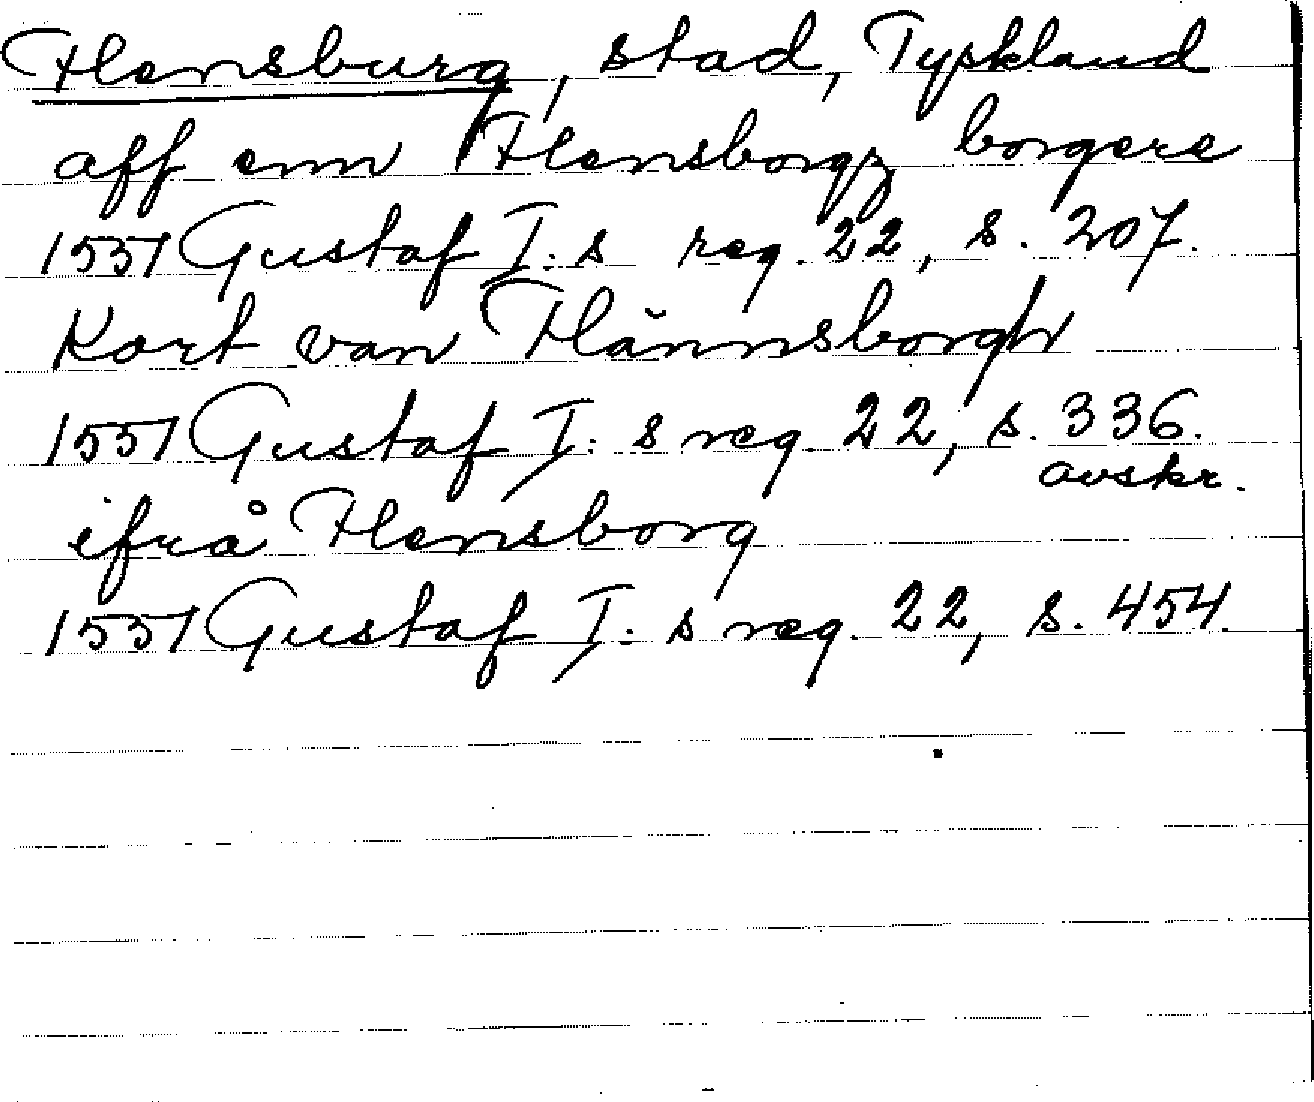 Flensburg, stad, Tyskland
aff enn Flensborgz borgere
1551 Gustaf I:s reg. 22, s. 207.
Kort van Flännsborgh
1551 Gustaf I:s reg. 22, s. 336.
avskr.
ifrå Flensborg
1551 Gustaf I:s reg. 22, s. 454.